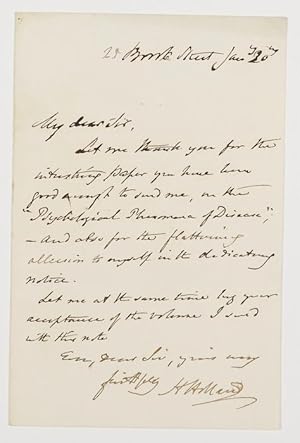 25 Brook Street Jany 20th
My dear Sir,
Let me thank you for the
interesting paper you have been
good enough to send me, on the
"Psychological Phenomena of Disease";
– And also for the flattering
allusion to myself in the dedicatory
notice.
Let me at the same time beg your
acceptance of the volume I send
with this note
Ever, Dear Sir, yours very
faithfully H Holland